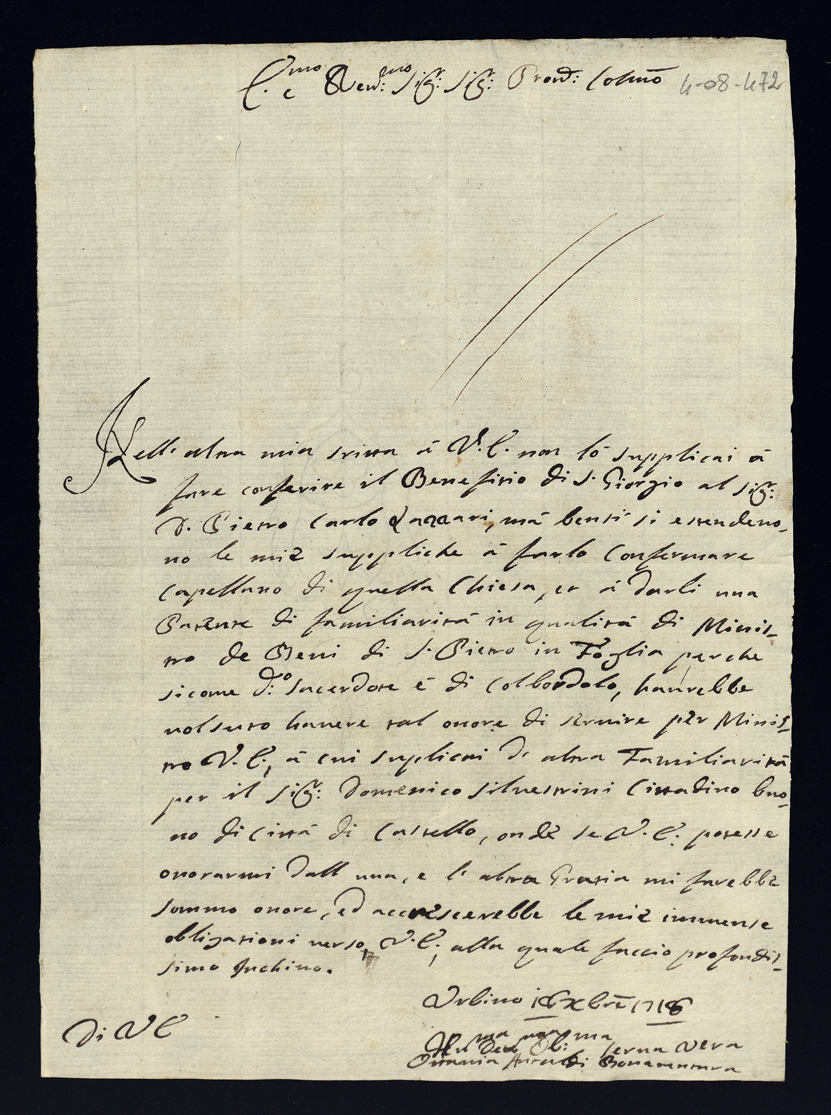 E.mo e Rev.mo Sig.r Sig.r Pron: Colmo
4-08-472
Nell'altra mia scritta à V.E. non lo supplicai à
fare conferire il Benefitio di S. Giorgio al Sig.r
D. Pietro Carlo Lazzari, mà bensi si estendeno-
no le mie suppliche à farlo confermare
Capellano di questa Chiesa, et à darli una
Patente di familiarità in qualità di Minis-
tro de Beni di S. Pietro in Foglia perche
sicome d.o Sacerdote è di Colbordolo, haurebbe
volsuto havere tal onore di servire per Minis-
tro V.E., à cui suplicai di altra Familiarità
per il Sig.r Domenico Silvestrini Cittadino buo-
no di Città di Castello, onde se V.E. potesse
onorarmi dall una, e l'altra Grazia mi farebbe
sommo onore, ed accrescerebbe le mie immense
obligazioni verso V.E., alla quale faccio profondis-
simo Inchino.
Urbino 16 Xbre 1716
Di VE
Hu.ma Dev.ma Ob:ma Serva Vera
Ottavia Bonaventura